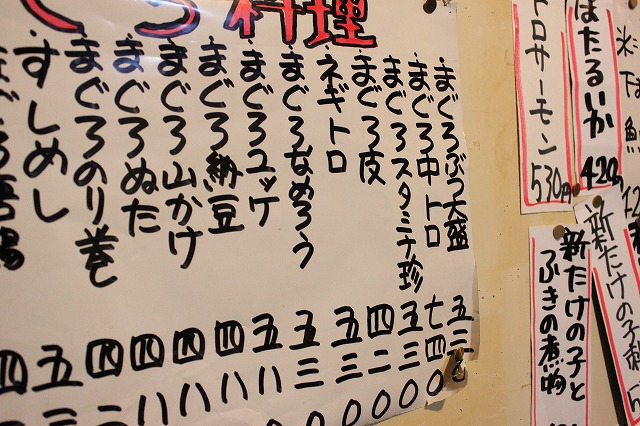 氷下魚
ほたるいか 420円
トロサーモン 530円
新たけの子刺
新たけの子と
ふきの煮物
ぐろ料理
まぐろぶつ大盛 五三
まぐろ中トロ 七四〇
まぐろスタミナ珍 五三〇
まぐろ皮 四二〇
ネギトロ 五三〇
まぐろなめろう 五三〇
まぐろユッケ 五八〇
まぐろ納豆 四八
まぐろ山かけ 四八
まぐろぬた 四八
まぐろのり巻 四二
すしめし 五三